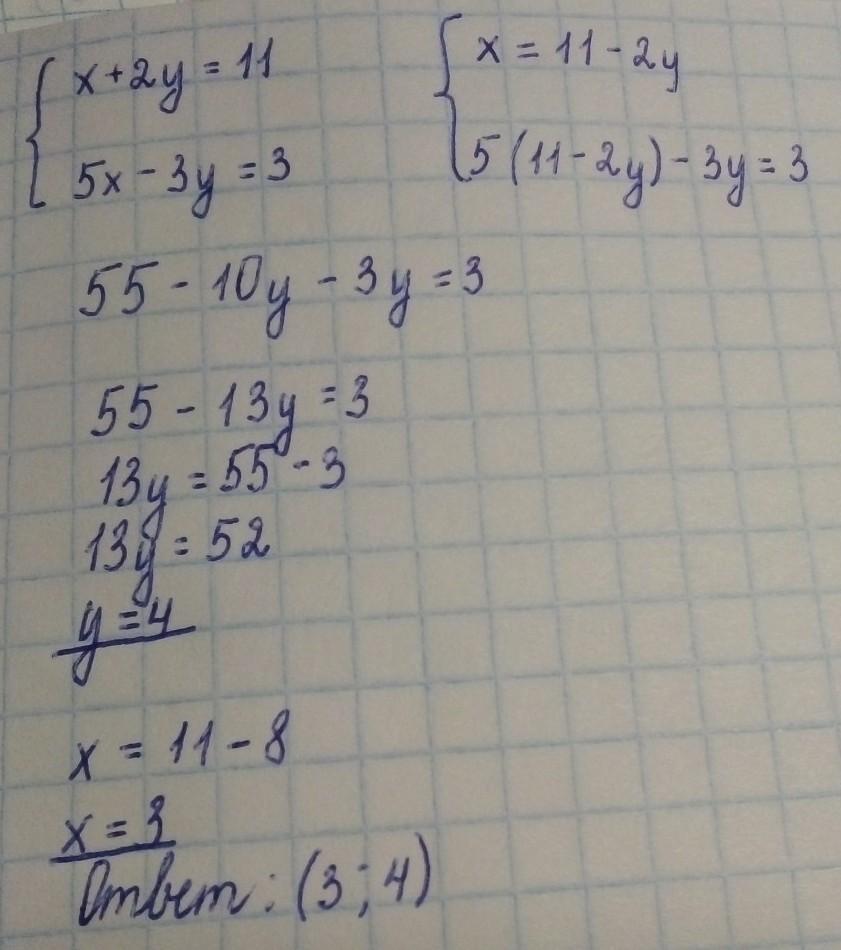 x+2y=11
5x-3y=3
x=11-2y
5(11-2y)-3y=3
55-10y-3y=3
55-13y=3
13y=55-3
13y=52
y=4
x=11-8
x=3
Ответ: (3;4)